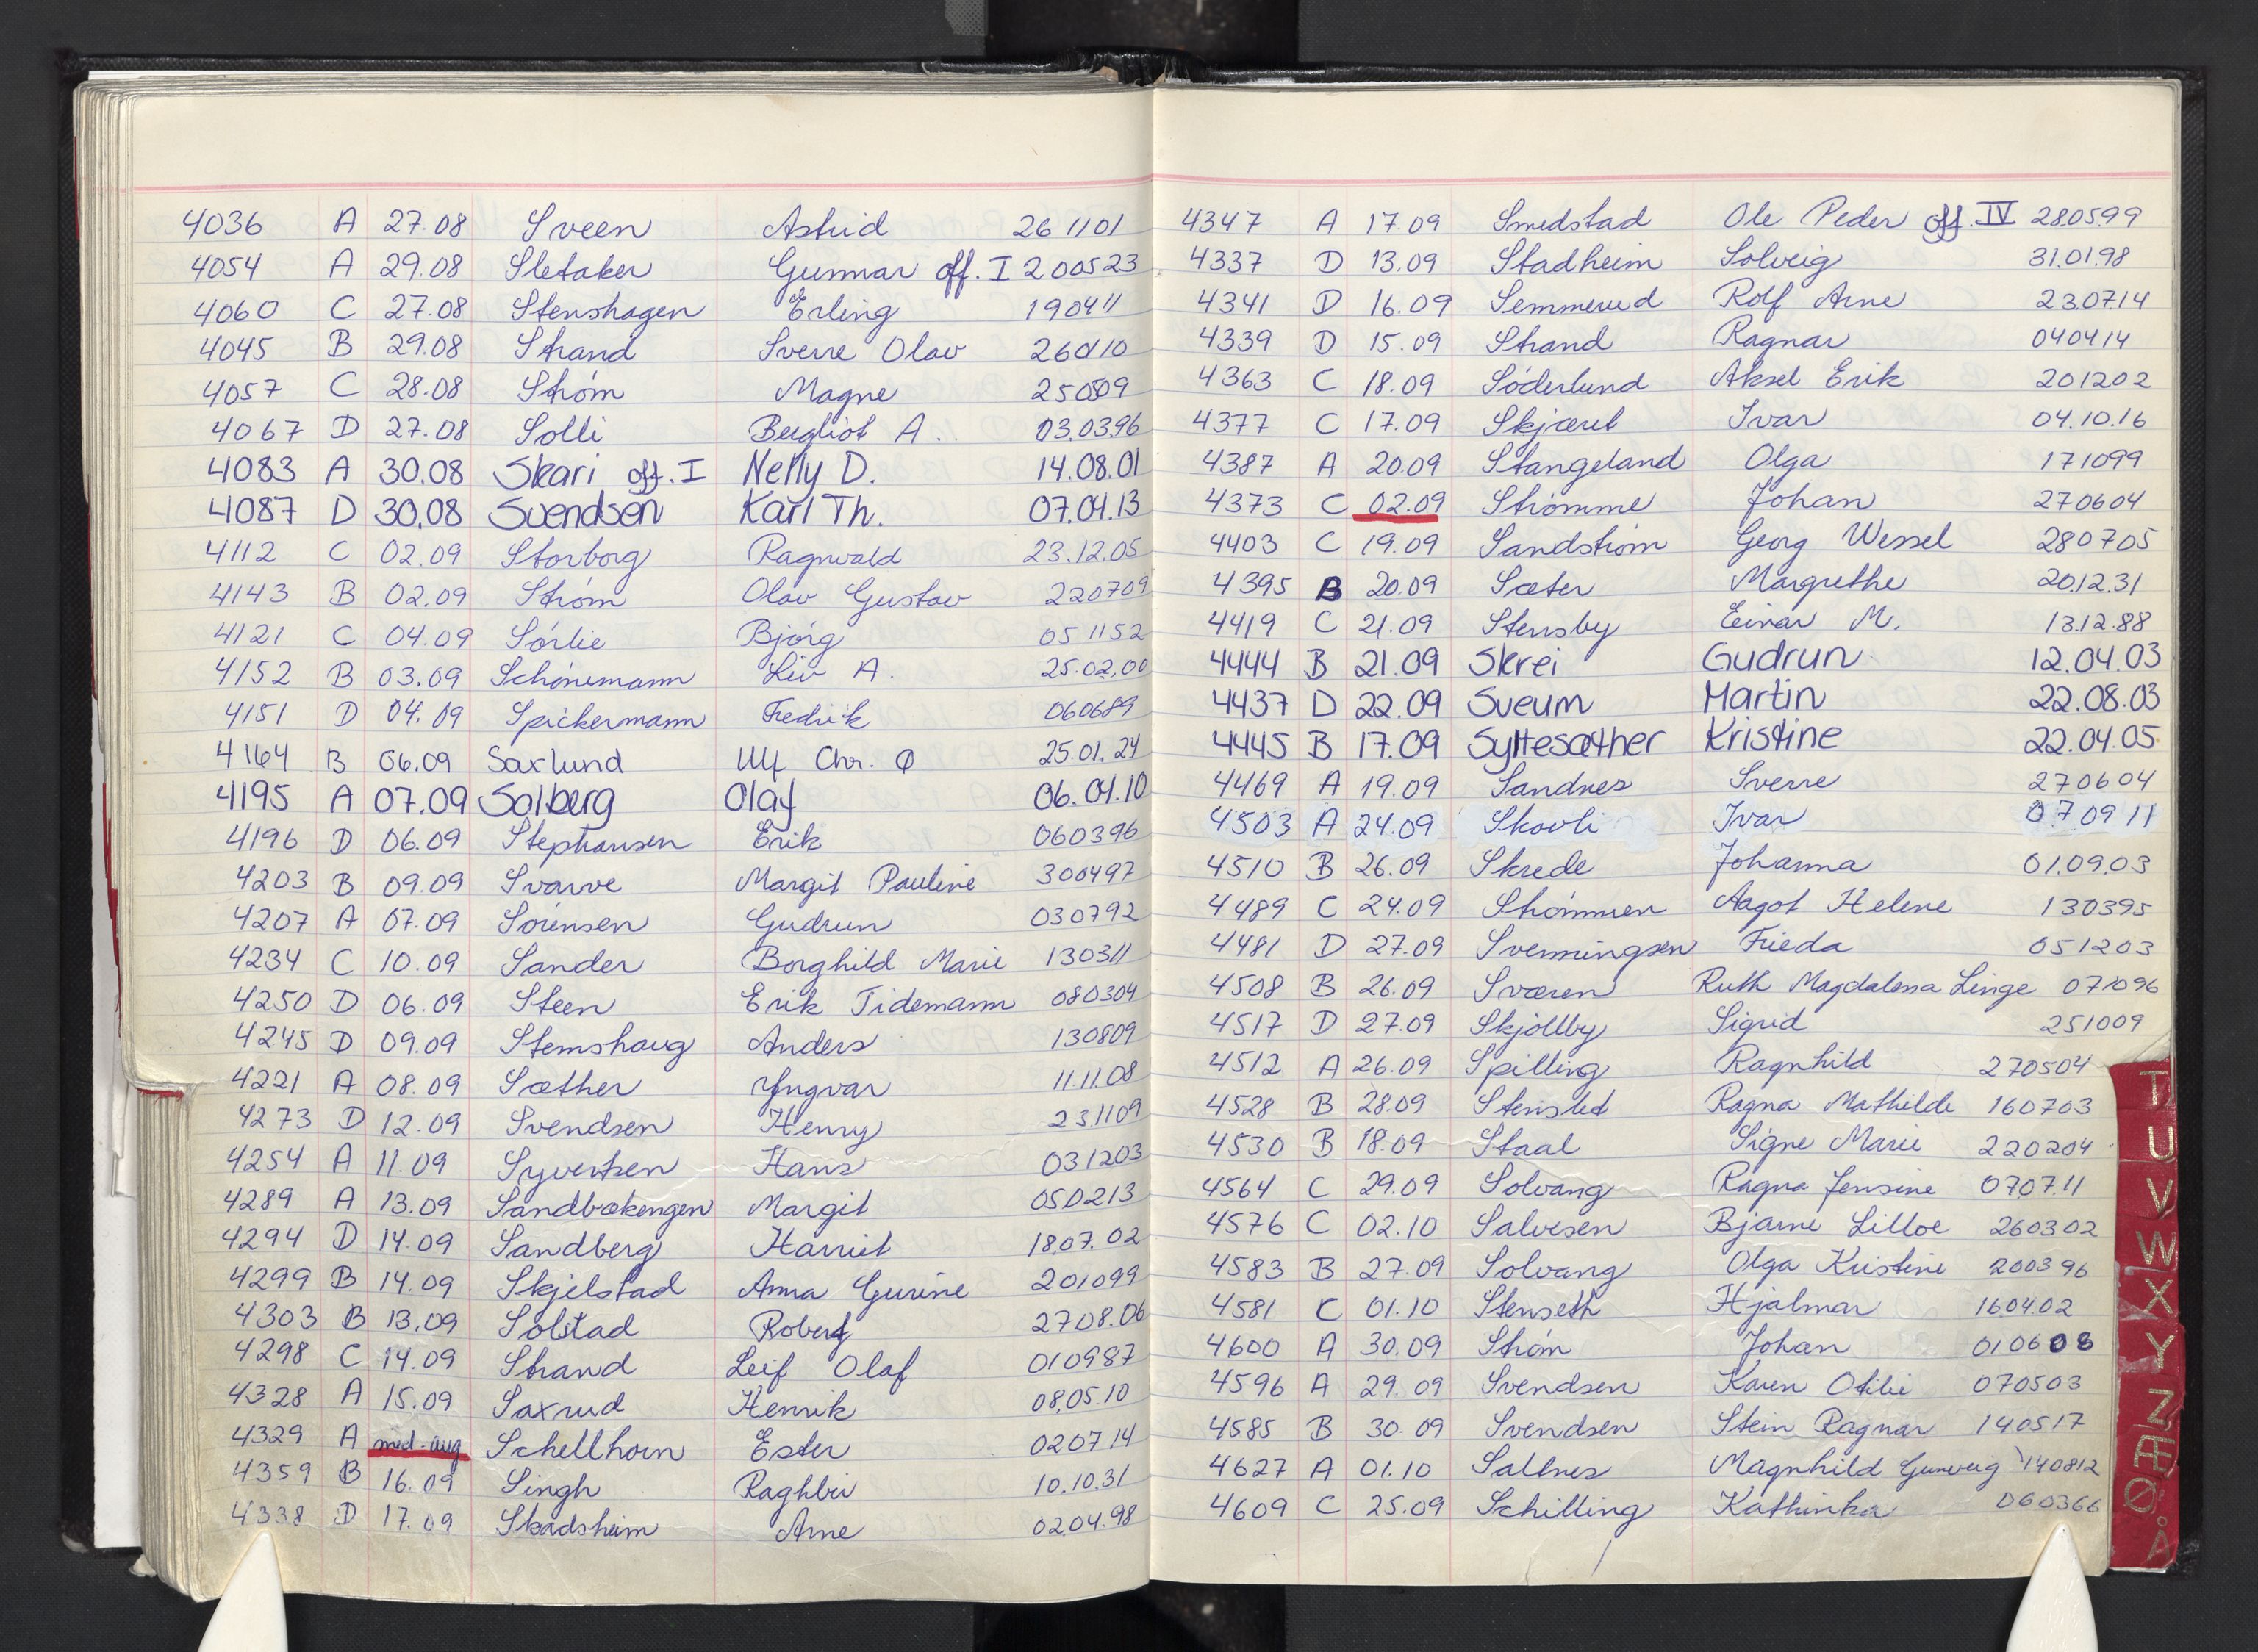 4036 A 27.08 Sveen Astrid 261101
4054 A 29.08 Sletaker Gunnar off. I 200523
4060 C 27.08 Stenshagen Erling 190411
4045 B 29.08 Strand Sverre Olav
4057 C 28.08 Strøm Magne
4067 D 27.08 Solli Bergliot A. 03.03.96
4083 A 30.08 Skari off. I Nelly D. 14.08.01
4087 D 30.08 Svendsen Karl Th. 07.04.13
4112 C 02.09 Storborg Ragnvald 23.12.05
4143 B 02.09 Strøm Olav Gustav 220709
4121 C 04.09 Sørlie Bjørg 051152
4152 B 03.09 Schønemann Liv A. 25.02.00
4151 D 04.09 Spickermann Fredrik 060689
4164 B 06.09 Saxlund Ulf Chr. Ø 25.01.24
4195 A 07.09 Solberg Olaf 06.04.10
4196 D 06.09 Stephansen Erik 060396
4203 B 09.09 Svarve Margit Pauline 300497
4207 A 07.09 Sørensen Gudrun 030792
4234 C 10.09 Sander Borghild Marie 130311
4250 D 06.09 Steen Erik Tidemann 080304
4245 D 09.09 Stemshaug Anders 130809
4221 A 08.09 Sæther Yngvar 11.11.08
4273 D 12.09 Svendsen Henry 231109
4254 A 11.09 Syvertsen Hans 031203
4289 A 13.09 Sandbækengen Margit 050213
4294 D 14.09 Sandberg Harriet 18.07.02
4299 B 14.09 Skjelstad Anna Gurine 201099
4303 B 13.09 Solstad Robert 2708.06
4298 C 14.09 Strand Leif Olaf 010987
4328 A 15.09 Saxrud Henrik 08.05.10
4329 A med-aug Schellhorn Ester 020714
4359 B 16.09 Singh Raghbir 10.10.31
4338 D 17.09 Stadsheim Arne 02.04.98
4347 A 17.09 Smedstad Ole Peder off. IV 280599
4337 D 13.09 Stadheim Solveig 31.01.98
4341 D 16.09 Semmerud Rolf Arne 230714
4339 D 15.09 Strand Ragnar 040414
4363 C 18.09 Söderlund Aksel Erik 201202
4377 C 17.09 Skjæret Ivar 04.10.16
4387 A 20.09 Stangeland Olga 171099
4373 C 02.09 Strømme Johan 270604
4403 C 19.09 Sandstrøm Georg Wessel 280705
4395 B 20.09 Sæter Margrethe 20.12.31
4419 C 21.09 Stensby Einar M. 13.12.88
4444 B 21.09 Skrei Gudrun 12.04.03
4437 D 22.09 Sveum Martin 22.08.03
4445 B 17.09 Syltesæther Kristine 22.04.05
4469 A 19.09 Sandnes Sverre 270604
4503 A 24.09 Skovli Ivar 070911
4510 B 26.09 Skrede Johanna 01.09.03
4489 C 24.09 Strømmen Aagot Helene 130395
4481 D 27.09 Svenningsen Frieda 051203
4508 B 26.09 Sværen Ruth Magdalena Linge 071096
4517 D 27.09 Skjøllby Sigrid 251009
4512 A 26.09 Spilling Ragnhild 270504
4528 B 28.09 Stensled Ragna Mathilde 160703
4530 B 18.09 Staal Signe Marie 220204
4564 C 29.09 Solvang Ragna Jensine 0707.11
4576 C 02.10 Salvesen Bjarne Lilloe 260302
4583 B 27.09 Solvang Olga Kristine 200396
4581 C 01.10 Stenseth Hjalmar 1604.02
4600 A 30.09 Strøm Johan 010608
4596 A 29.09 Svendsen Karen Otilie 070503
4585 B 30.09 Svendsen Stein Ragnar 140517
4627 A 01.10 Saltnes Magnhild Gunveig 140812
4609 C 25.09 Schilling Kathinka 060366
T
U
V
W
X
Y
Z
Æ
Ø
Å